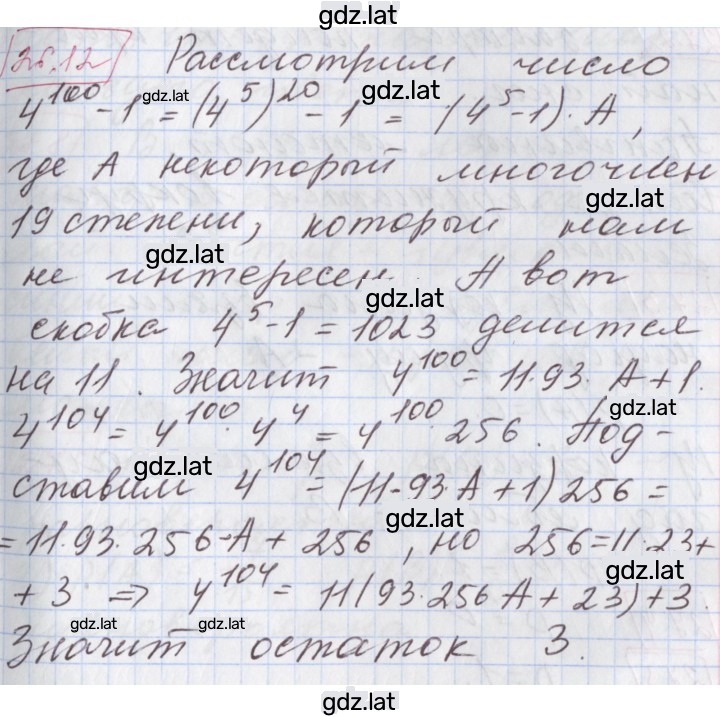 gdz.lat
26.12 Рассмотрим число
gdz.lat gdz.lat
4^100 - 1 = (4^5)^20 - 1 = (4^5-1)·A,
где А некоторый многочлен
gdz.lat
19 степени, который нам
gdz.lat
не интересен. А вот
gdz.lat
скобка 4^5-1 = 1023 делится
на 11. Значит 4^100 = 11·93·A+1.
gdz.lat
4^104 = 4^100·4^4 = 4^100·256. Под-
gdz.lat
ставим 4^104 = (11·93·A+1)256 =
gdz.lat
= 11·93·256·A + 256, но 256=11·23+
gdz.lat
+ 3 => 4^104 = 11(93·256A+23)+3.
gdz.lat gdz.lat
Значит остаток 3.
gdz.lat